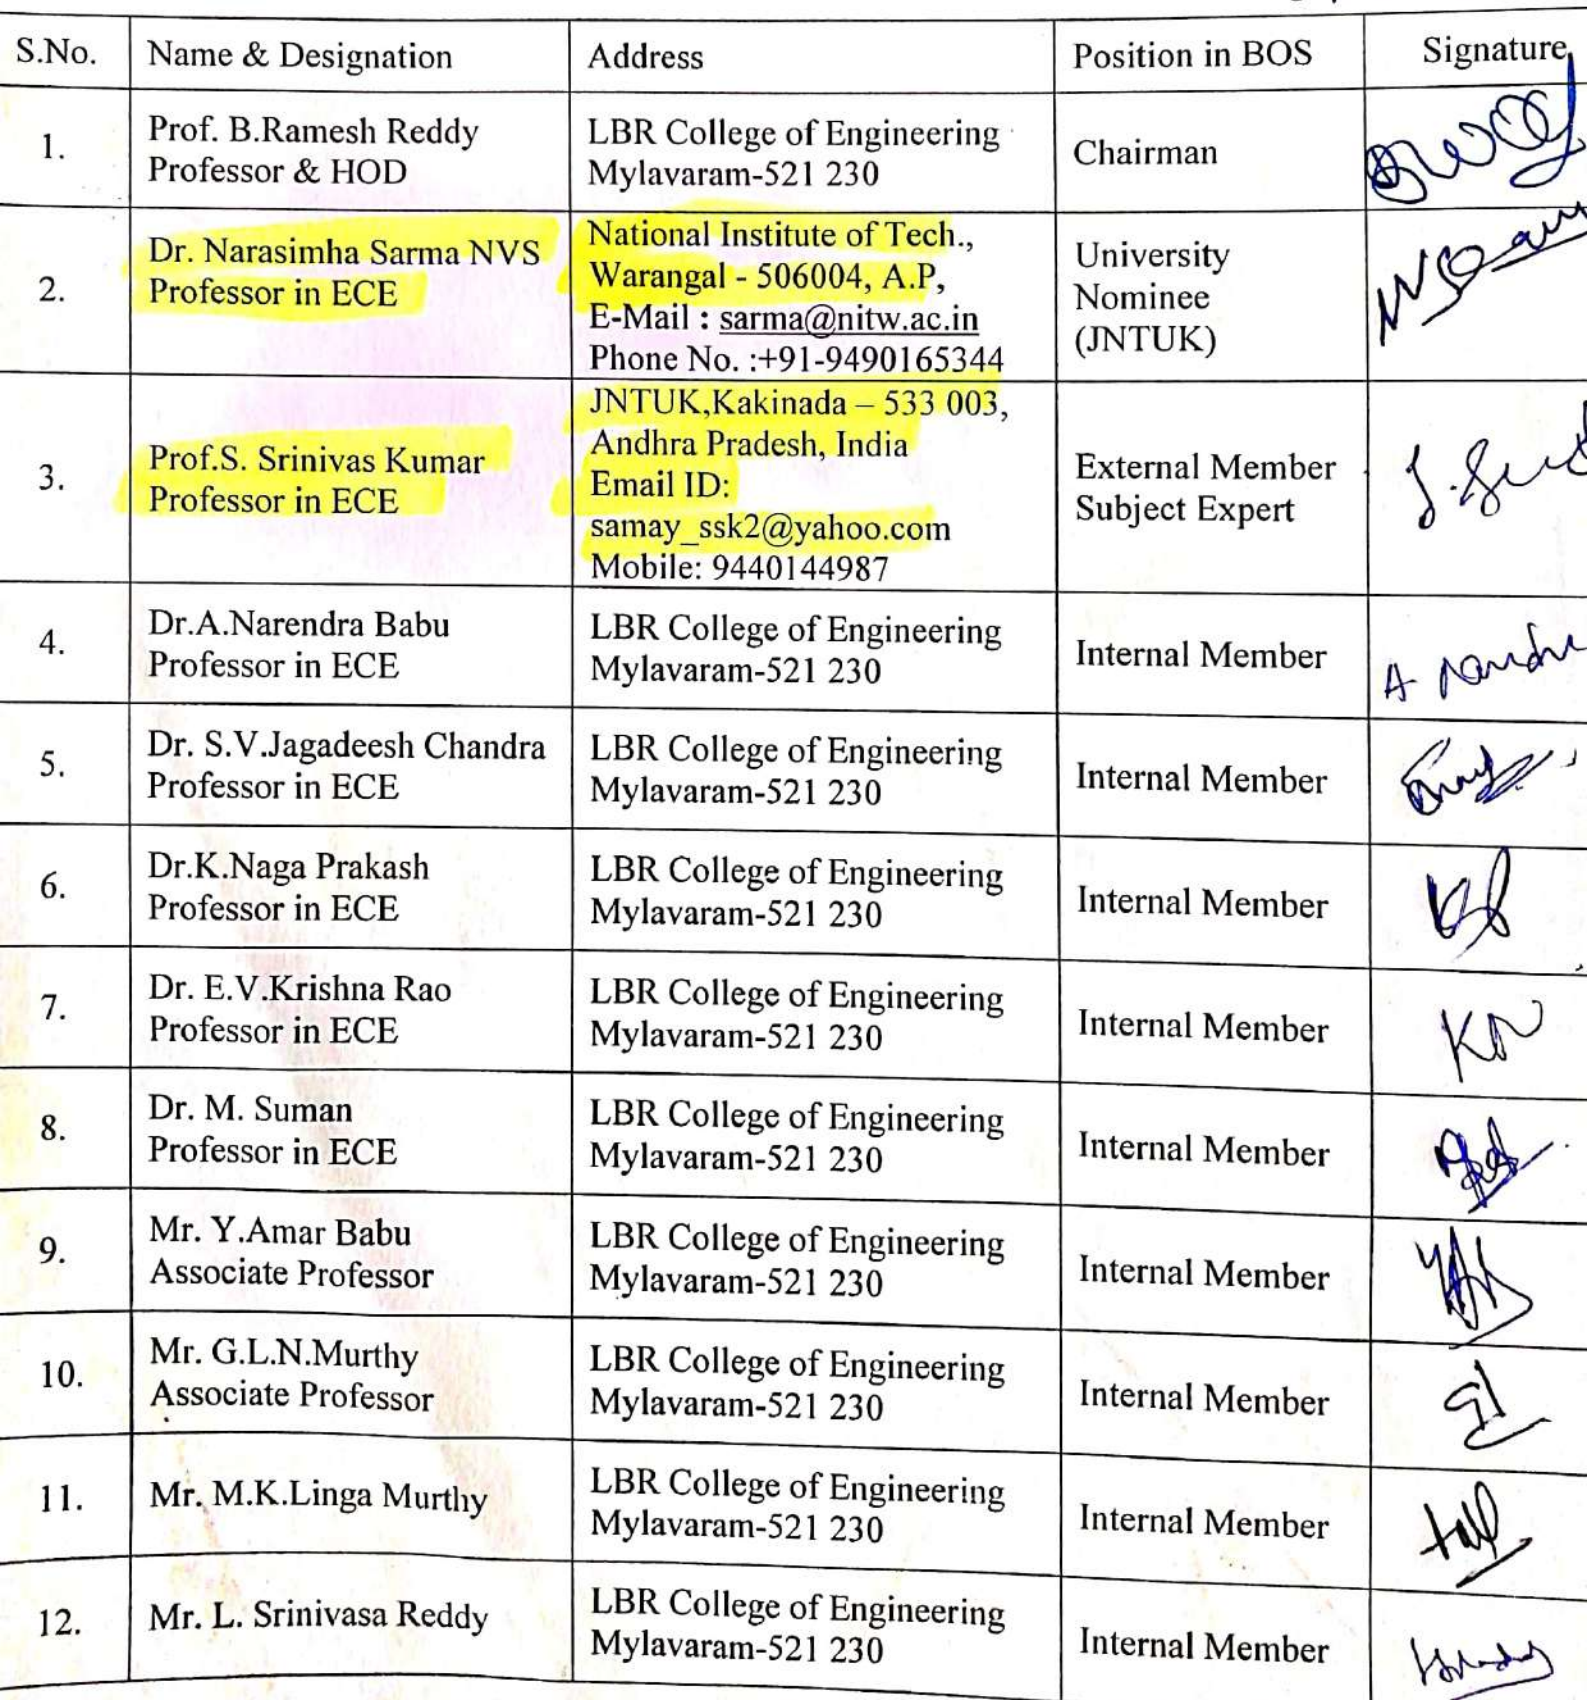 S.No. Name & Designation Address Position in BOS Signature
1. Prof. B.Ramesh Reddy
Professor & HOD
LBR College of Engineering
Mylavaram-521 230
Chairman
2. Dr. Narasimha Sarma NVS
Professor in ECE
National Institute of Tech.,
Warangal - 506004, A.P,
E-Mail : sarma@nitw.ac.in
Phone No. :+91-9490165344
University
Nominee
(JNTUK)
3. Prof.S. Srinivas Kumar
Professor in ECE
JNTUK,Kakinada – 533 003,
Andhra Pradesh, India
Email ID:
samay_ssk2@yahoo.com
Mobile: 9440144987
External Member
Subject Expert
4. Dr.A.Narendra Babu
Professor in ECE
LBR College of Engineering
Mylavaram-521 230
Internal Member
5. Dr. S.V.Jagadeesh Chandra
Professor in ECE
LBR College of Engineering
Mylavaram-521 230
Internal Member
6. Dr.K.Naga Prakash
Professor in ECE
LBR College of Engineering
Mylavaram-521 230
Internal Member
7. Dr. E.V.Krishna Rao
Professor in ECE
LBR College of Engineering
Mylavaram-521 230
Internal Member
8. Dr. M. Suman
Professor in ECE
LBR College of Engineering
Mylavaram-521 230
Internal Member
9. Mr. Y.Amar Babu
Associate Professor
LBR College of Engineering
Mylavaram-521 230
Internal Member
10. Mr. G.L.N.Murthy
Associate Professor
LBR College of Engineering
Mylavaram-521 230
Internal Member
11. Mr. M.K.Linga Murthy
LBR College of Engineering
Mylavaram-521 230
Internal Member
12. Mr. L. Srinivasa Reddy
LBR College of Engineering
Mylavaram-521 230
Internal Member